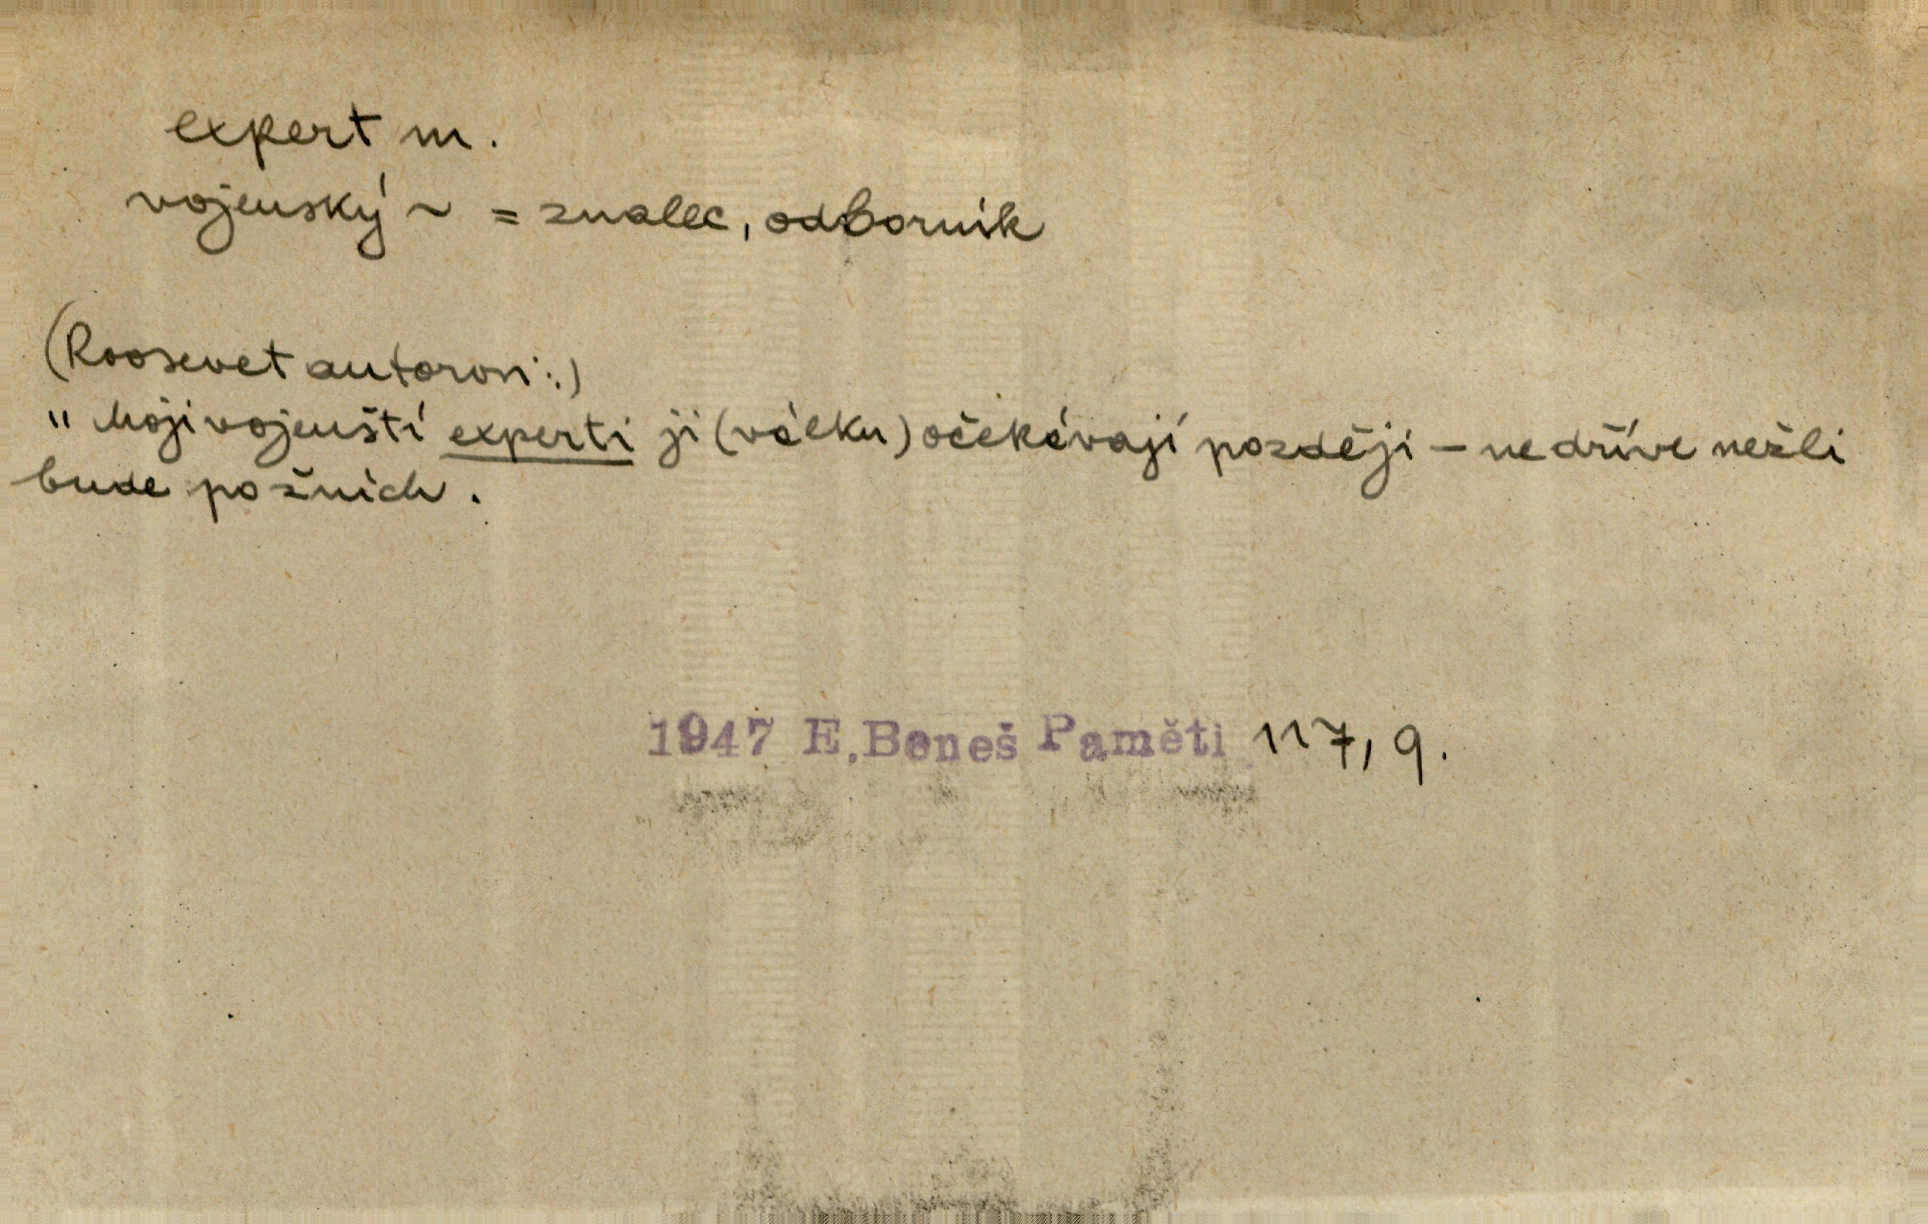 expert m.
vojenský ~ = znalec, odborník
(Roosevet autorovi:)
" Moji vojenští experti ji (válku) očekávají později – ne dříve nežli
bude po žních.
1947 E.Beneš Paměti 117, 9.